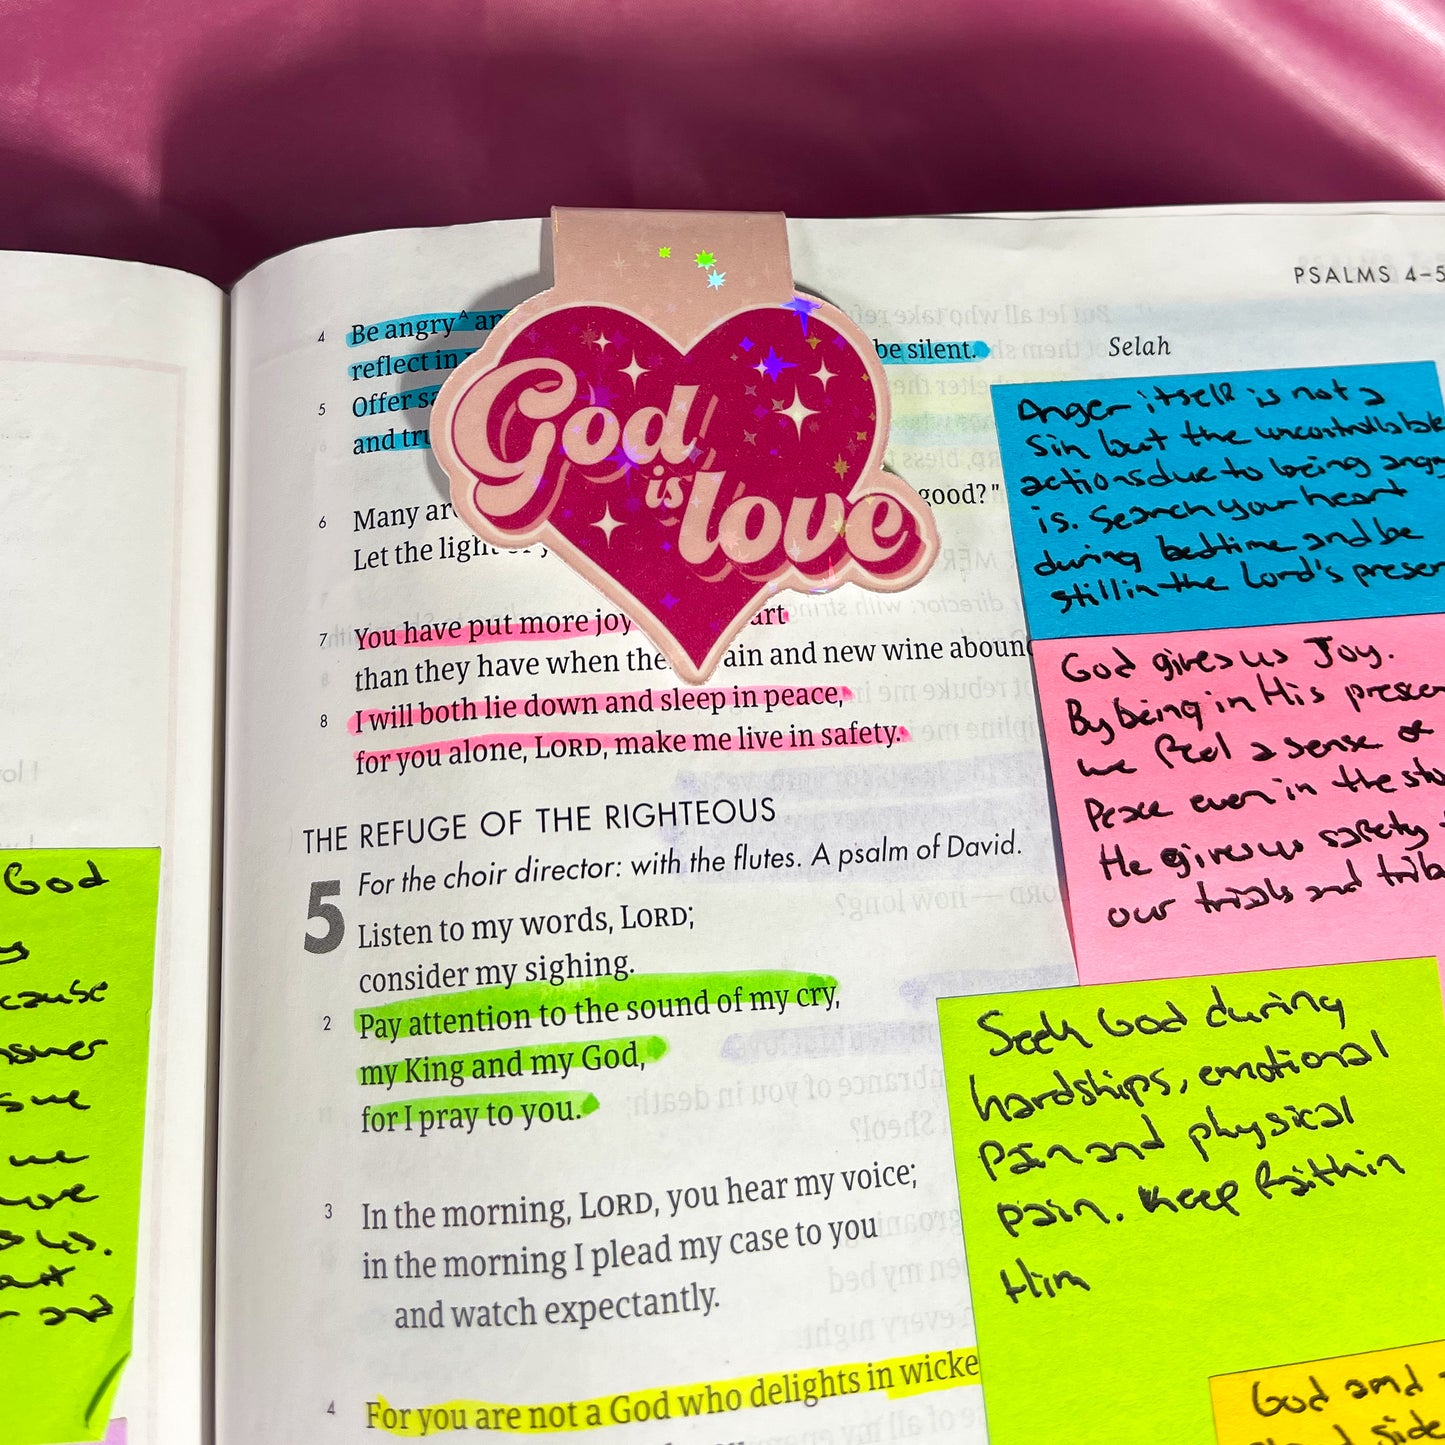 PSALMS 4–5
4 Be angry^A
be silent. Selah
reflect in
5 Offer
and
God
is
love
6 Many
good?"
Let the light
7 You have put more joy
than they have when and new wine abound
8 I will both lie down and sleep in peace,
for you alone, LORD, make me live in safety.
THE REFUGE OF THE RIGHTEOUS
For the choir director: with the flutes. A psalm of David.
5 Listen to my words, LORD;
consider my sighing.
2 Pay attention to the sound of my cry,
my King and my God,
for I pray to you.
3 In the morning, LORD, you hear my voice;
in the morning I plead my case to you
and watch expectantly.
4 For you are not a God who delights in
Anger itself is not a
Sin but the uncontrollable
actions due to being angry
is. Search your heart
during bedtime and be
still in the Lord's
God gives us Joy.
By being in His
we feel a sense of
Peace even in the
He gives us safety
our trials and
Seek God during
hardships, emotional
Pain and physical
pain. Keep faith in
Him
God and
side
God